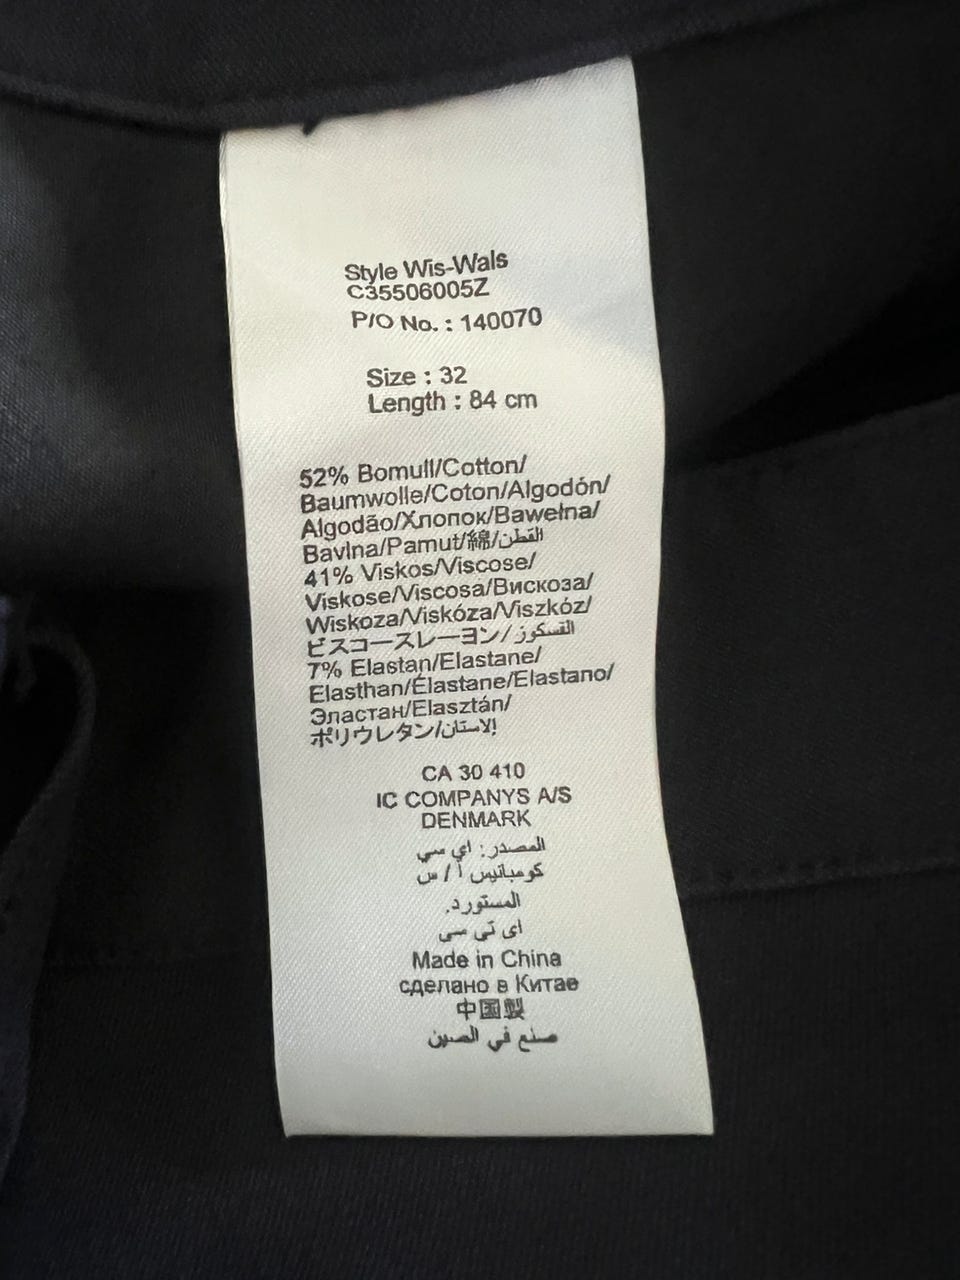 Style Wis-Wals
C35506005Z
P/O No. : 140070
Size : 32
Length : 84 cm
52% Bomull/Cotton/
Baumwolle/Coton/Algodón/
Algodão/Хлопок/Bawełna/
Bavlna/Pamut/綿/القطن
41% Viskos/Viscose/
Viskose/Viscosa/Вискоза/
Wiskoza/Viskóza/Viszkóz/
ビスコースレーヨン/القسكوز
7% Elastan/Elastane/
Elasthan/Élastane/Elastano/
Эластан/Elasztán/
ポリウレタン/الاستان!
CA 30 410
IC COMPANYS A/S
DENMARK
المصدر: اي سي
كومبانيس ا / س
المستورد.
اى تى سى
Made in China
сделано в Китае
中国製
صنع في الصين